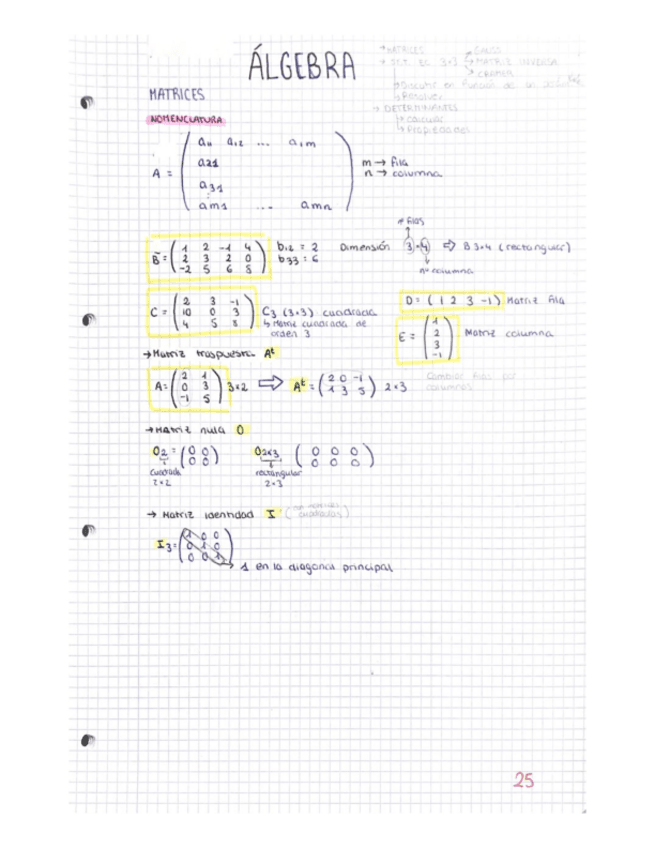 ÁLGEBRA
→MATRICES
GAUSS
MATRIZ INVERSA
CRAMER
→Discutir en función de un
→Resolver
→ DETERMINANTES
↳ Calcular
↳ Propiedades
MATRICES
NOMENCLATURA
a11 a12 ... a1m
a21
A =
a31
am1 ... amn
m → fila
n → columna
nº filas
B = ( 1 2 -1 4
2 3 2 0
-2 5 6 8 )
b12 = 2
b33 = 6
Dimensión 3×4 ⇒ B 3×4 (rectangular)
nº columna
C = ( 2 3 -1
10 0 3
4 5 8 )
C3 (3×3) cuadrada
↳ Matriz cuadrada de
orden 3
D = ( 1 2 3 -1 ) Matriz fila
E = ( 1
2
3
-1 )
Matriz columna
→Matriz traspuesta At
A = ( 2 1
0 3
-1 5 ) 3×2 ⇒ At = ( 2 0 -1
1 3 5 ) 2×3
Cambiar filas por
columnas
→Matriz nula O
O2 = ( 0 0
0 0 )
cuadrada
2×2
O2×3 ( 0 0 0
0 0 0 )
rectangular
2×3
→ Matriz identidad I (
cuadradas)
I3 = ( 1 0 0
0 1 0
0 0 1 )
→ 1 en la diagonal principal
25